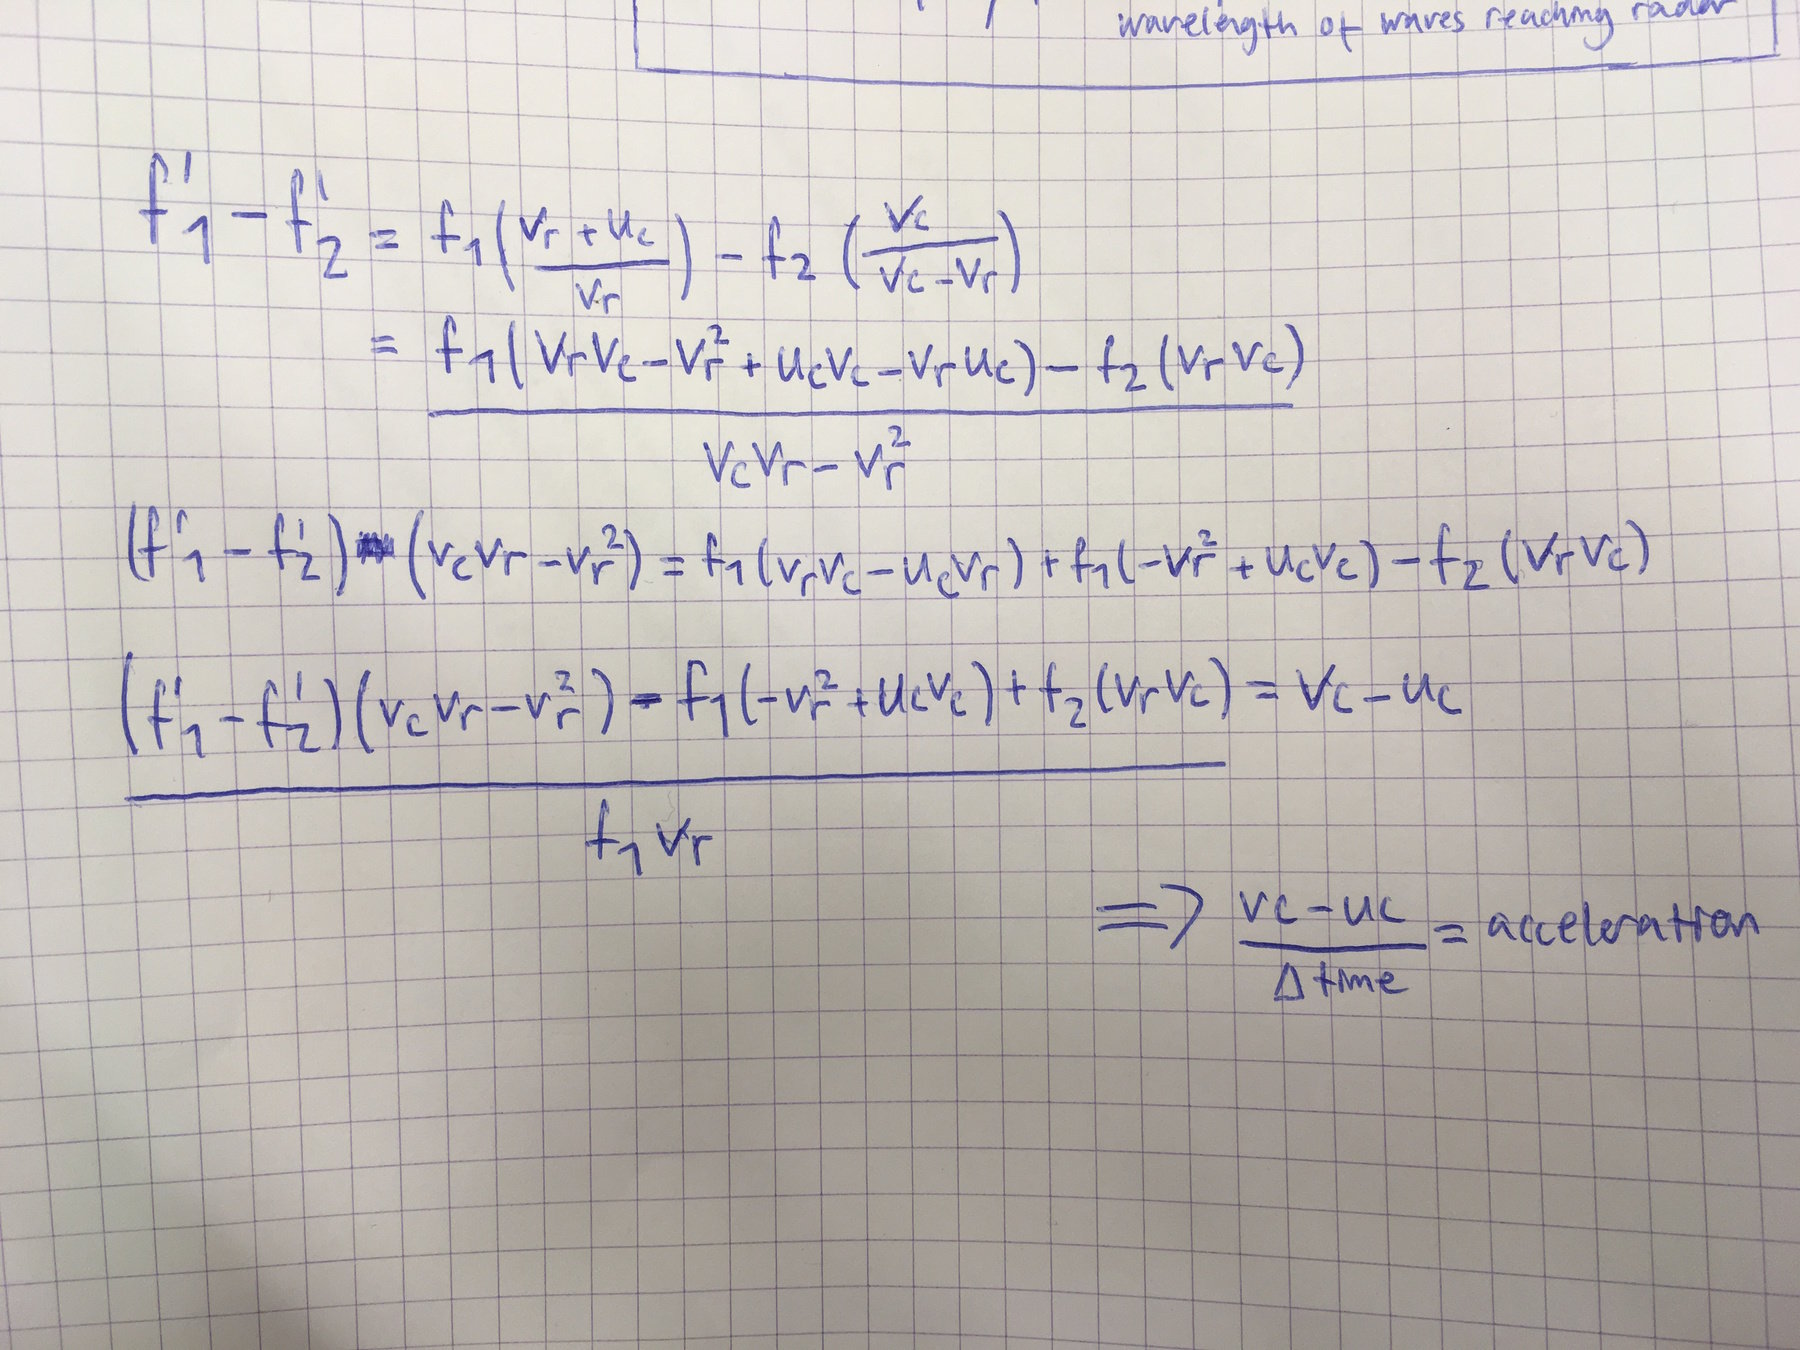 wavelength of waves reaching radar
f'₁ − f'₂ = f₁((vr + uc)/vr) − f₂(vc/(vc − vr))
= (f₁(vrvc − vr² + ucvc − vruc) − f₂(vrvc))/(vcvr − vr²)
(f'₁ − f'₂)(vcvr − vr²) = f₁(vrvc − ucvr) + f₁(−vr² + ucvc) − f₂(vrvc)
((f'₁ − f'₂)(vcvr − vr²) − f₁(−vr² + ucvc) + f₂(vrvc))/(f₁vr) = vc − uc
⇒ (vc − uc)/(Δtime) = acceleration